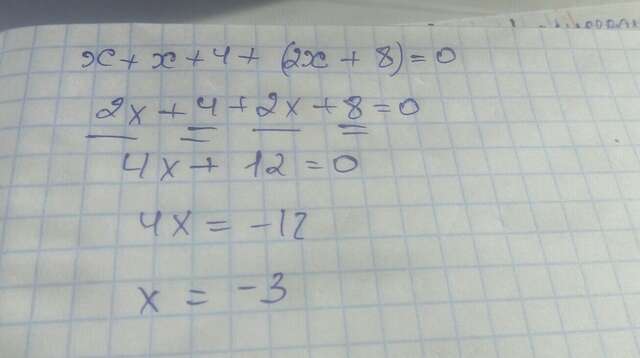 x + x + 4 + (2x + 8) = 0
2x + 4 + 2x + 8 = 0
4x + 12 = 0
4x = -12
x = -3